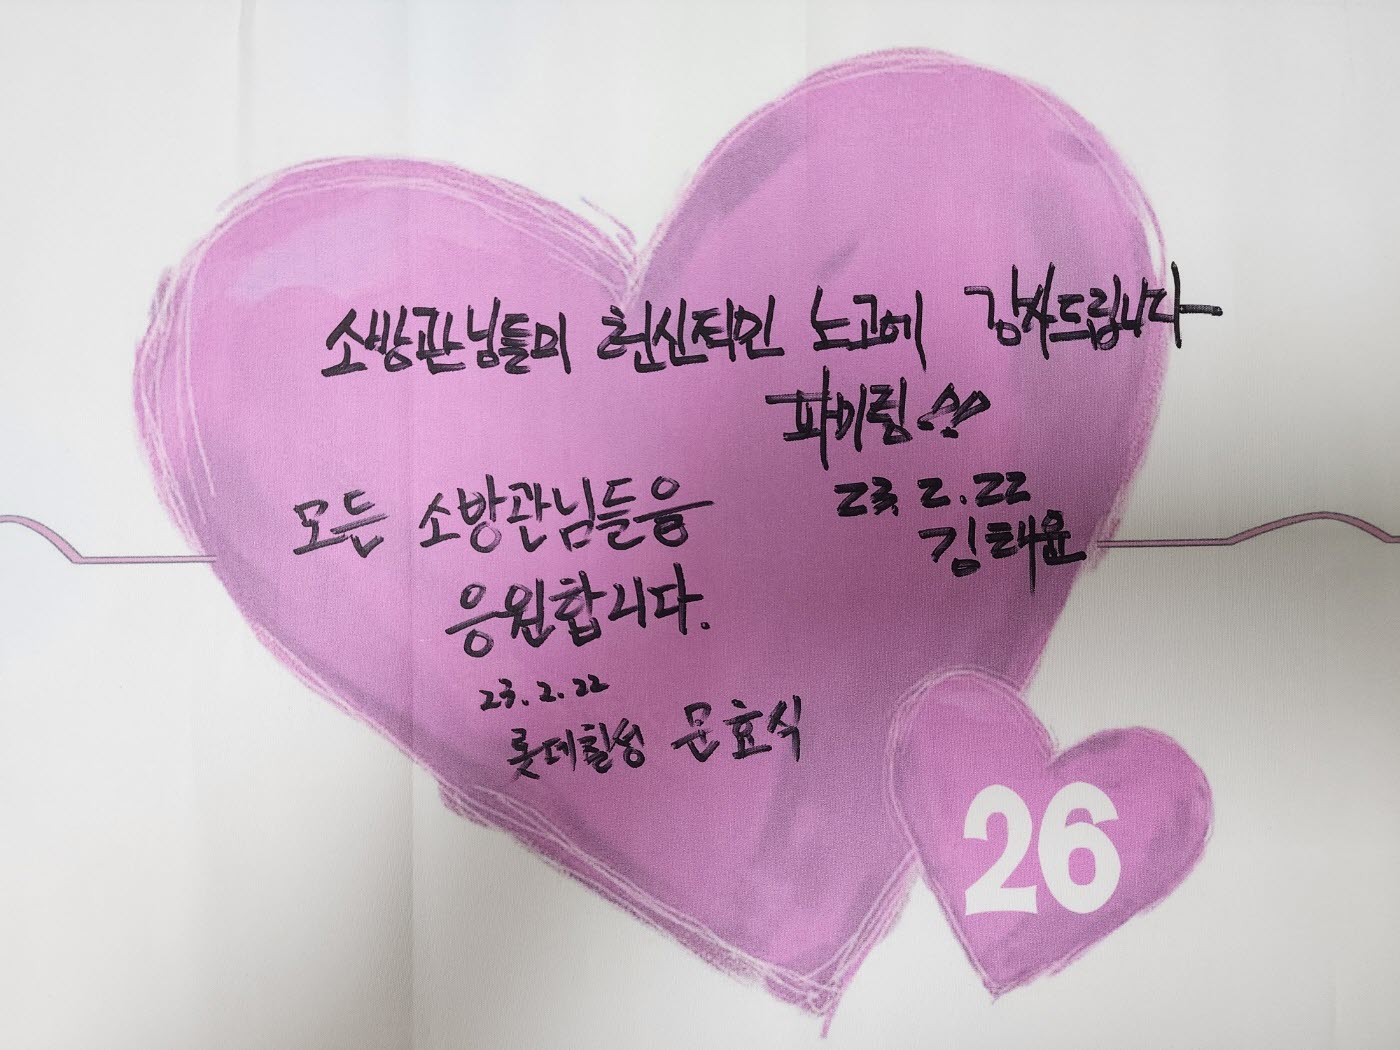 소방관님들의 헌신적인 노고에 감사드립니다
파이팅!!
23. 2. 22
김태윤
모든 소방관님들을
응원합니다.
23. 2. 22
롯데칠성 문효식
26